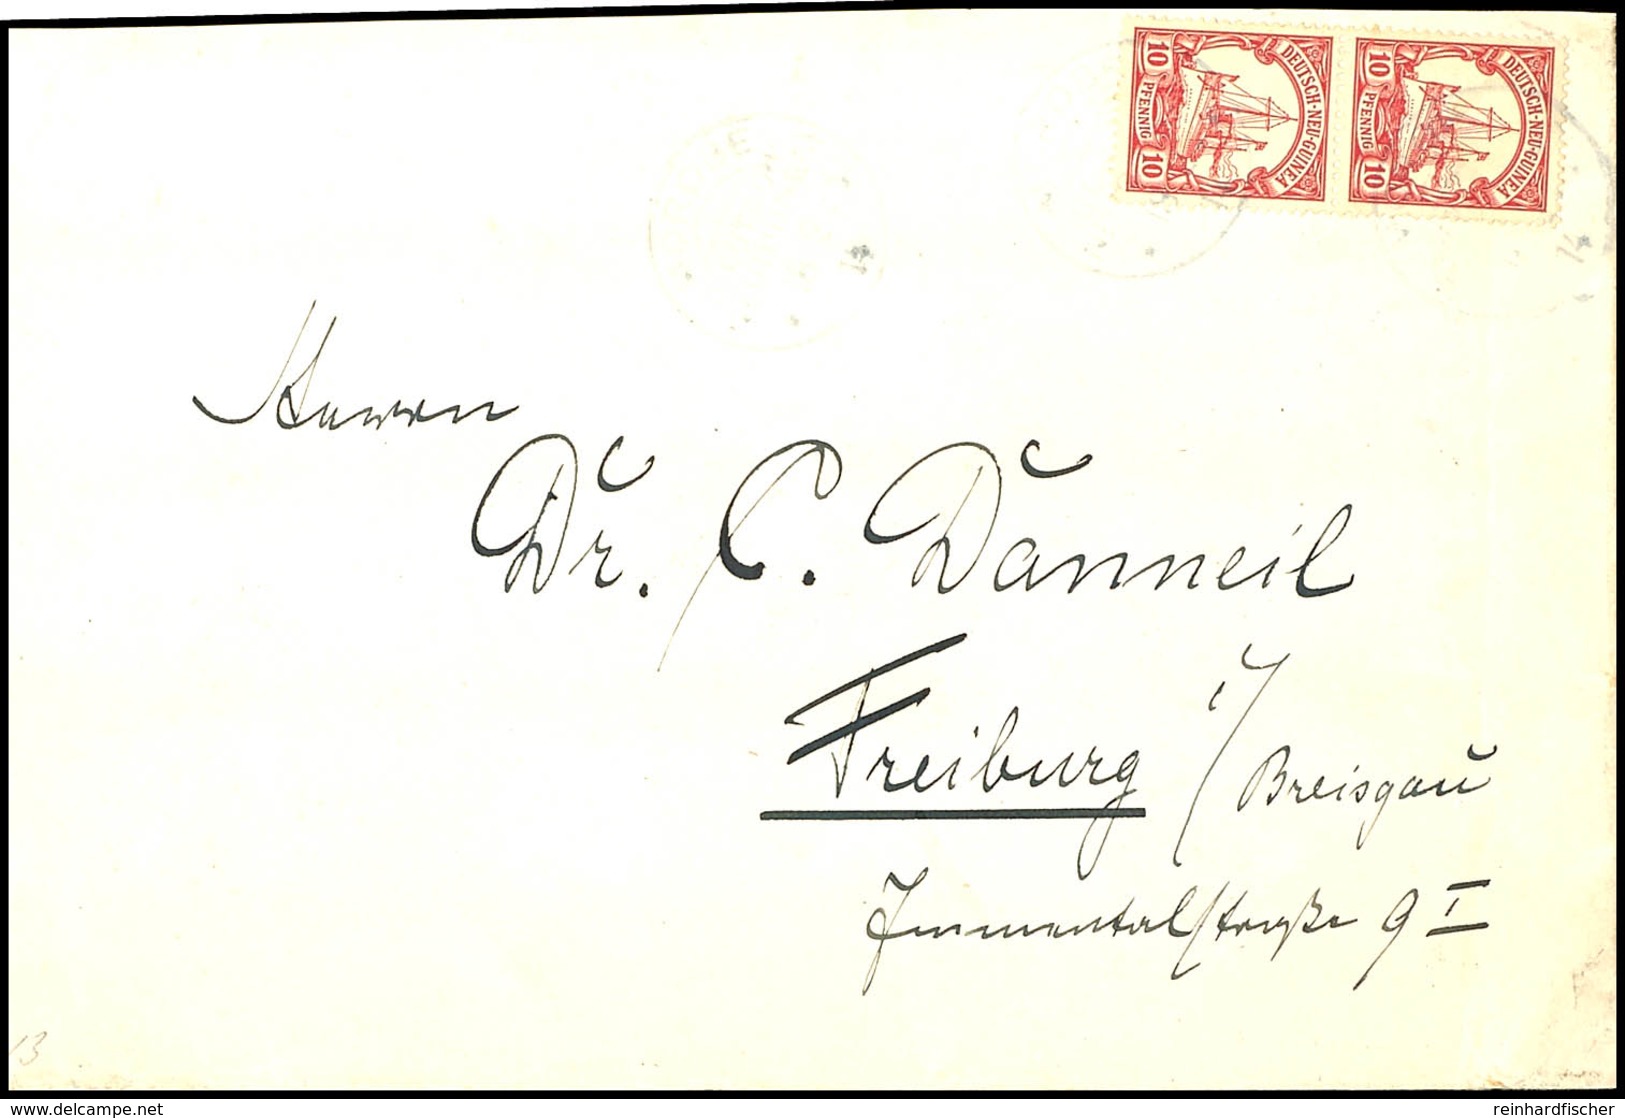 DEUTSCH-NEU-GUINEA
10 PFENNIG 10
DEUTSCH-NEU-GUINEA
10 PFENNIG 10
Herrn
Dr. C. Danneil
Freiburg i/Breisgau
Immentalstraße 9 I
13
www.delcampe.net
reinhardfischer